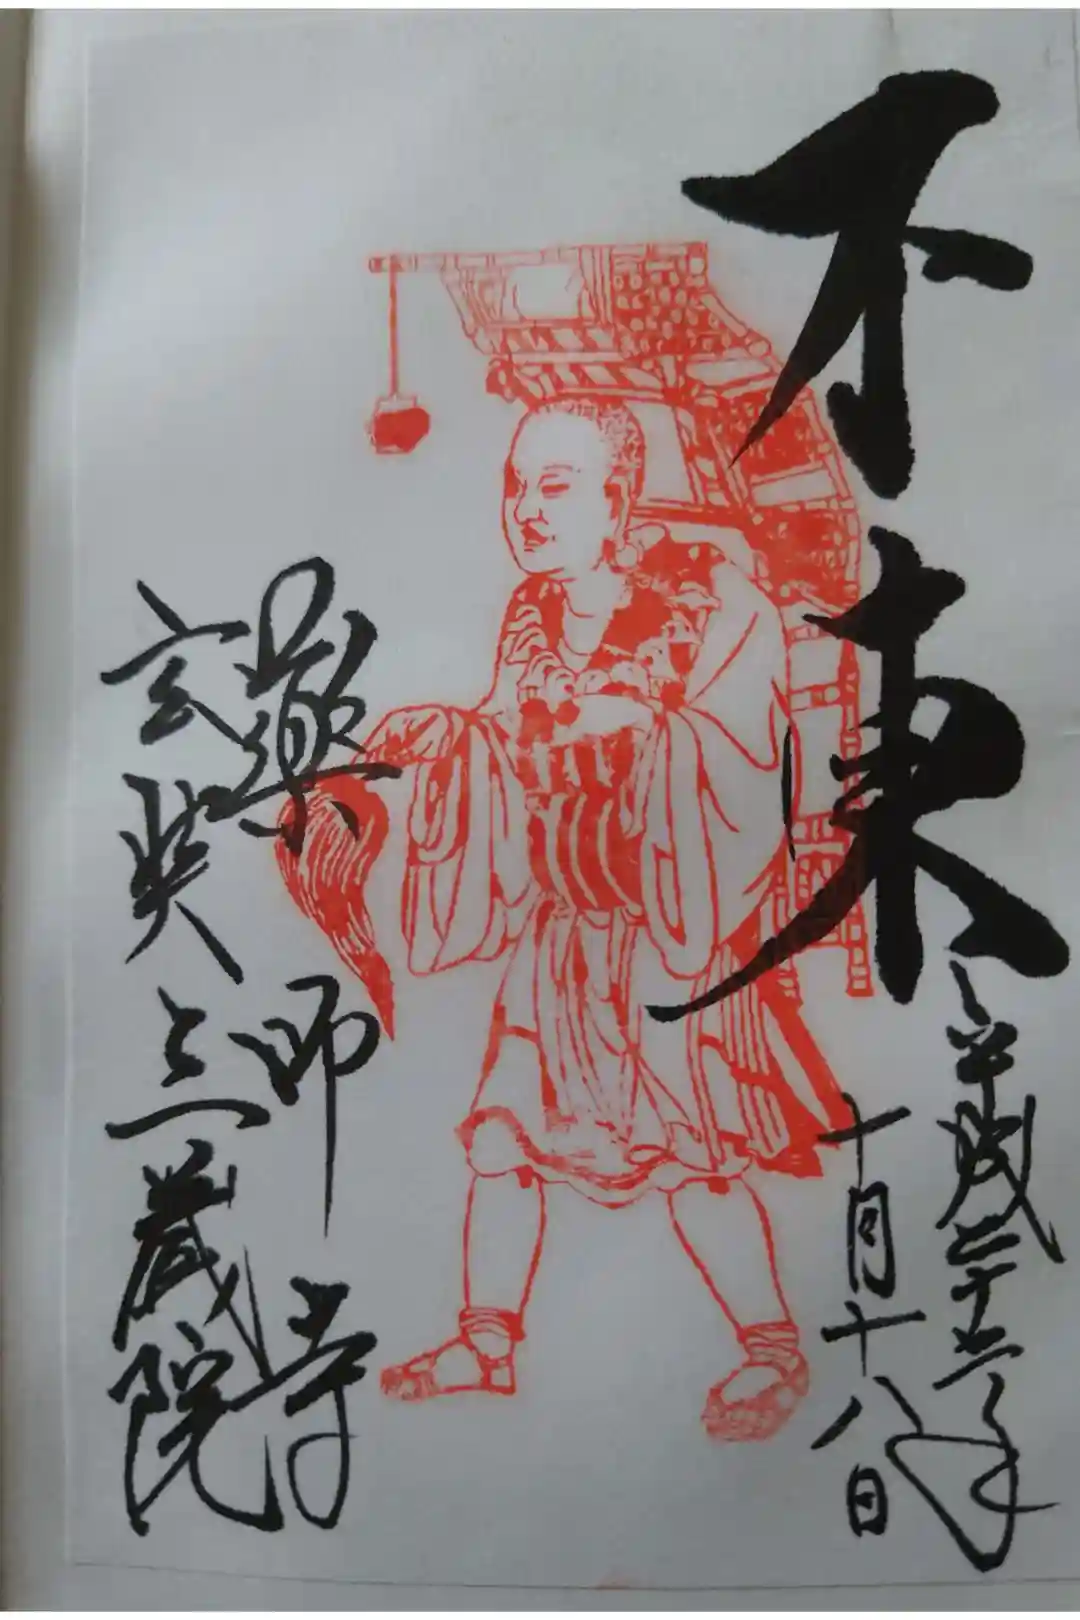 不東
平成二十年
十月十八日
薬師寺
玄奘三蔵院